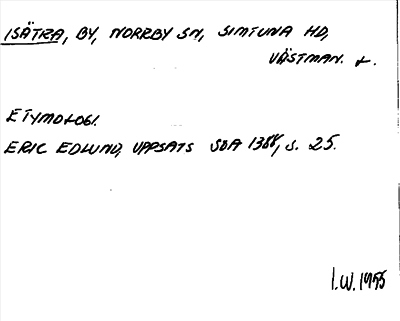 ISÄTRA, BY, NORRBY SN, SIMTUNA HD,
VÄSTMAN. L.
ETYMOLOGI.
ERIC EDLUND, UPPSATS SOA 1388, S. 25.
I.W. 1955